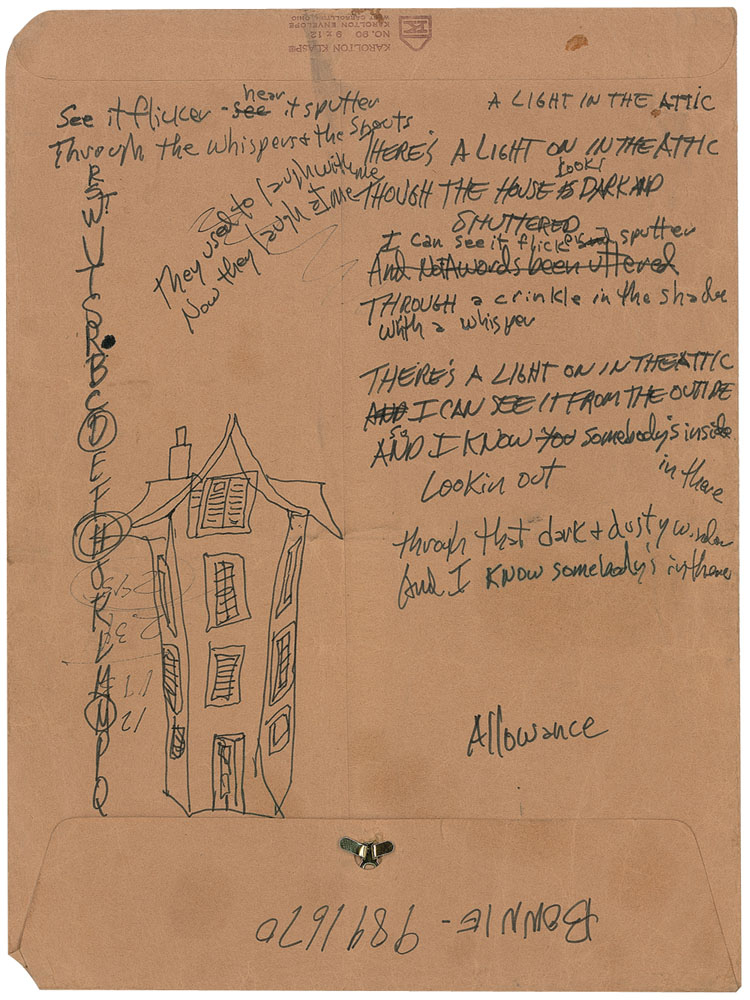 KAROLTON KLASP®
NO. 90 9 x 12
KAROLTON ENVELOPE
WEST CARROLLTON, OHIO
K
hear
See it flicker - see it sputter
Through the whispers & the shouts
They used to laugh with me
Now they laugh at me
A LIGHT IN THE ATTIC
THERE'S A LIGHT ON IN THE ATTIC
looks
THOUGH THE HOUSE IS DARK AND
SHUTTERED
I can see it flicker and sputter
And Not A words been uttered
THROUGH a crinkle in the shade
with a whisper
THERE'S A LIGHT ON IN THE ATTIC
AND I CAN SEE IT FROM THE OUTIDE
so
AND I KNOW you somebody's inside
in there
Lookin out
through that dark & dusty window
And I KNOW somebody's in there
R
S
W
U
T
S
R
B
C
D
E
F
H
J
R
L
M
N
P
Q
Allowance
BONNIE - 9891670